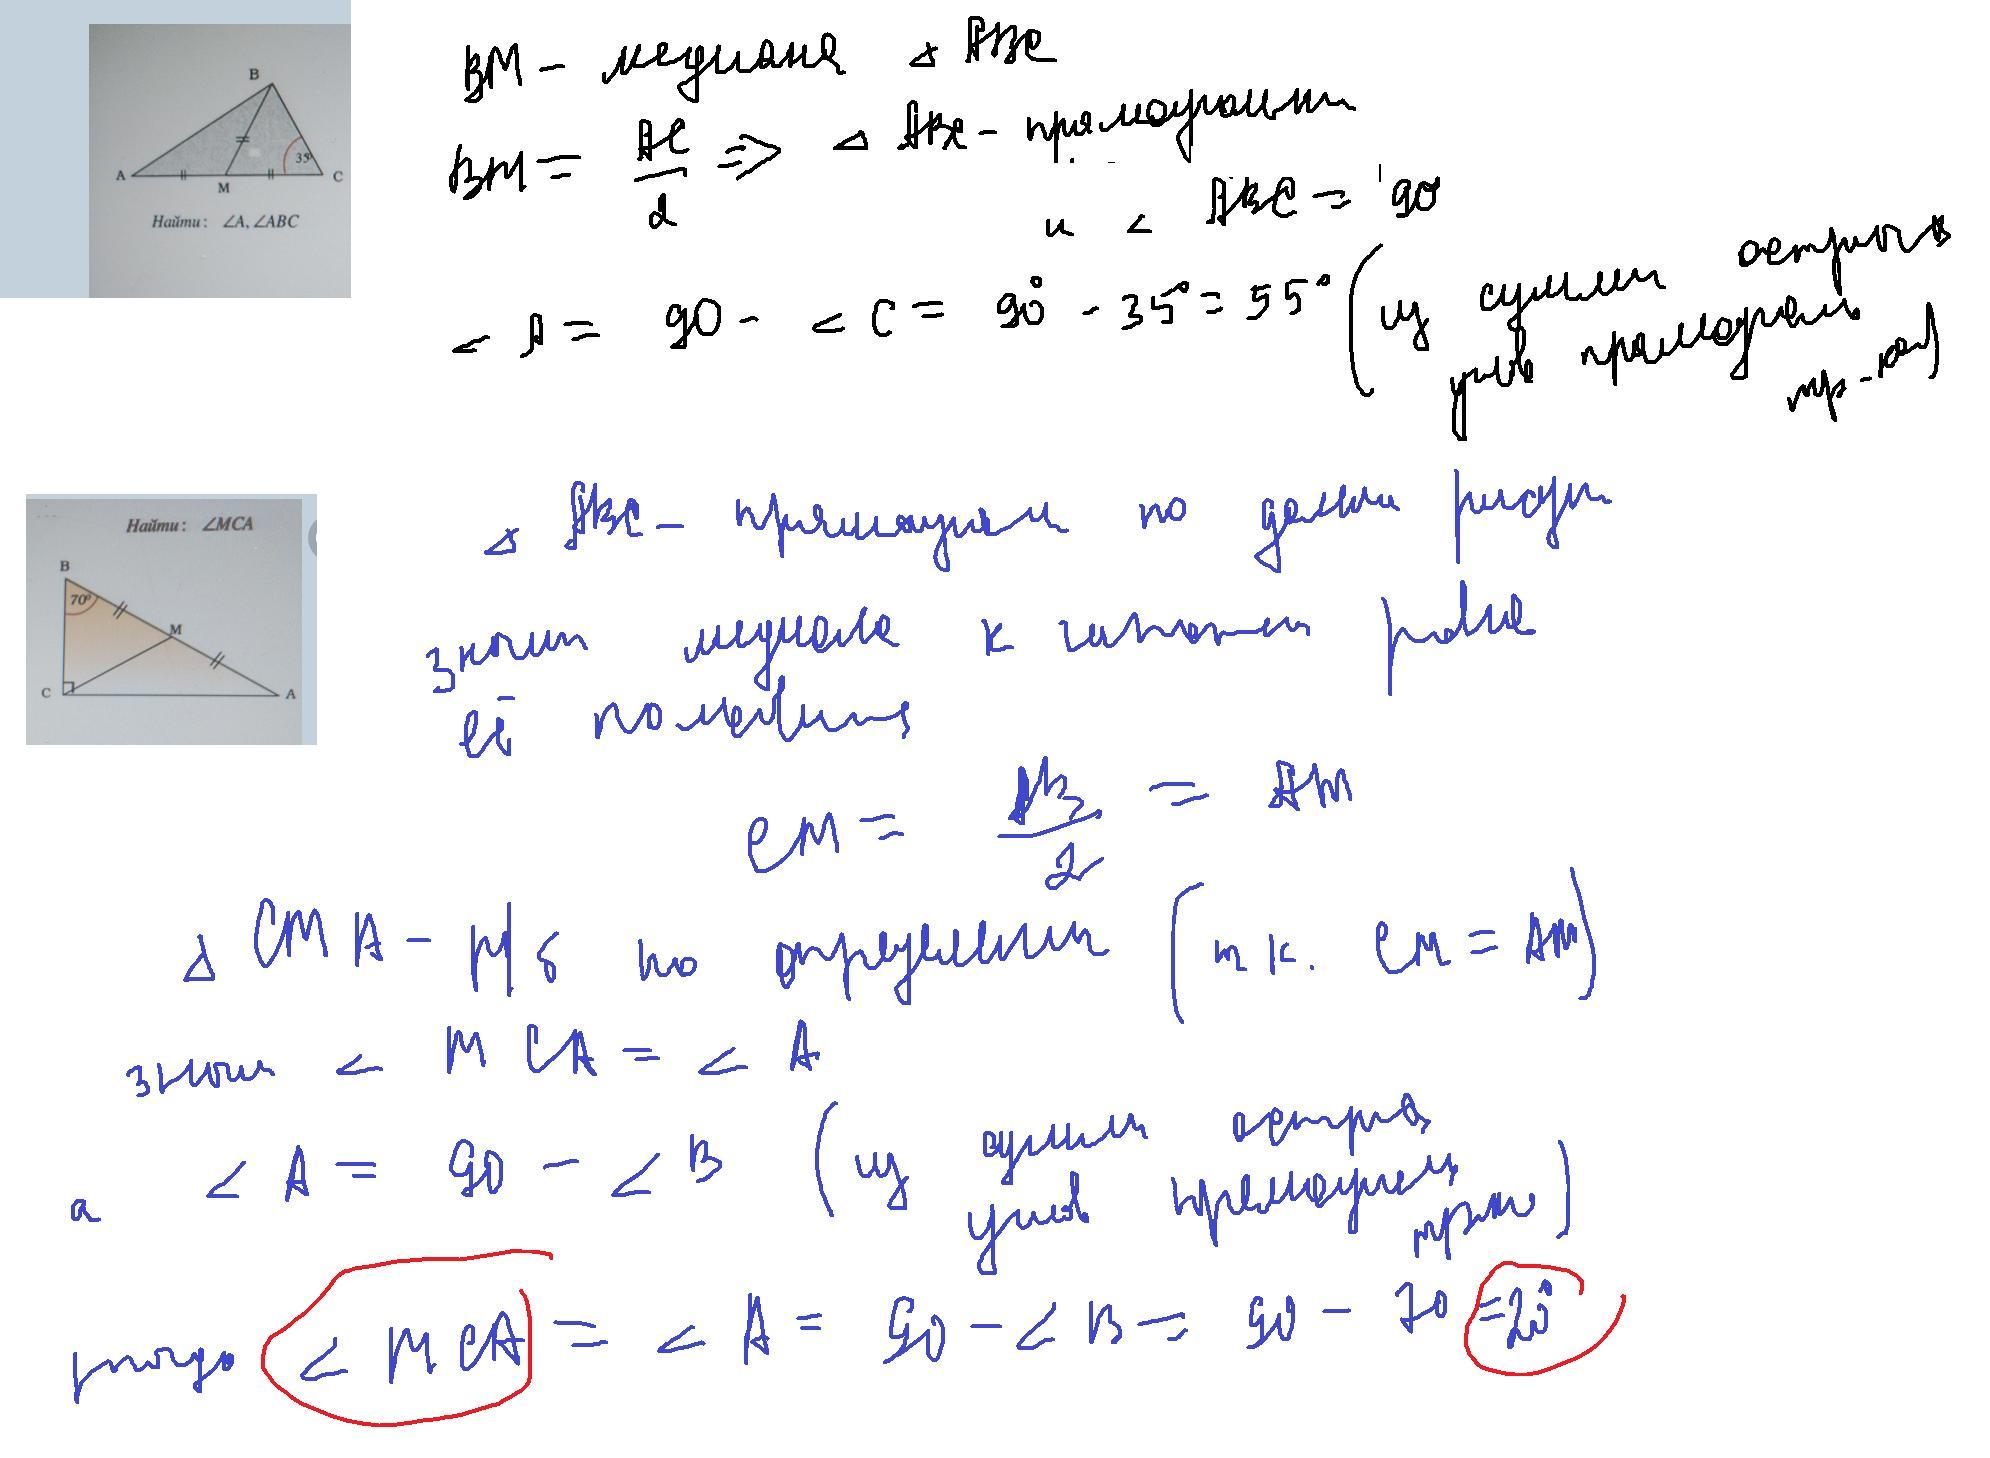 B
35°
A
M
C
Найти: ∠A, ∠ABC
BM – медиана △ ABC
BM = AC/2 ⇒ △ ABC – прямоугольн
и ∠ ABC = 90
∠ A = 90 – ∠ C = 90° - 35° = 55° (из суммы острых
углов прямоугольн
тр-ка)
Найти: ∠MCA
B
70°
M
C
A
△ ABC – прямоугольн по данным рисунк
значит медиана к гипотен равна
её половине
CM = AB/2 = AM
△ CMA – р/б по определению (тк. CM = AM)
значит ∠ MCA = ∠ A
а ∠ A = 90 – ∠ B (из суммы острых
углов прямоугольн
тр-ка)
тогда ∠ MCA = ∠ A = 90 – ∠ B = 90 – 70 = 20°